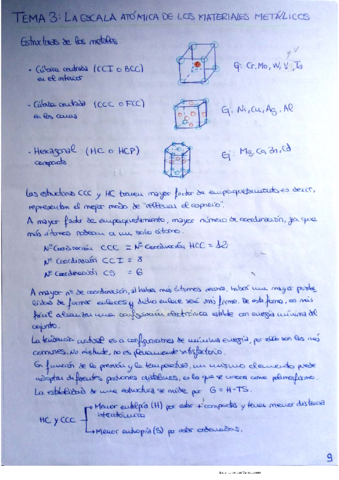 TEMA 3: LA ESCALA ATÓMICA DE LOS MATERIALES METÁLICOS
Estructuras de los metales
- Cúbica centrada (CCI o BCC)
en el interior
Ej: Cr, Mo, W, V,
- Cúbica centrada (CCC o FCC)
en las caras
Ej: Ni, Cu, Ag, Al
- Hexagonal (HC o HCP)
compacta
Ej: Mg, Zn, Cd
Las estructuras CCC y HC tienen mayor factor de empaquetamiento es decir,
representan el mejor modo de "rellenar el espacio".
A mayor factor de empaquetamiento, mayor número de coordinación, ya que
más átomos rodean a un solo átomo.
Nº Coordinación CCC = Nº Coordinación HCC = 12
Nº Coordinación CCI = 8
Nº Coordinación CS = 6
A mayor nº de coordinación, al haber más átomos cerca, habrá una mayor
de formar enlaces y dicho enlace será más firme. De esta forma, es más
fácil alcanzar una configuración electrónica estable con energía mínima del
conjunto.
La tendencia actual es a configuraciones de mínima energía, por ello son las más
comunes. No obstante, no es plenamente satisfactorio.
En función de la presión y la temperatura, un mismo elemento puede
adoptar diferentes posiciones cristalinas, es lo que se conoce como polimorfismo.
La estabilidad de una estructura se mide por G = H-TS.
HC y CCC
Menor entalpía (H) por estar + compactas y tener menor distancia
interatómica
Menor entropía (S) por estar ordenadas.
9